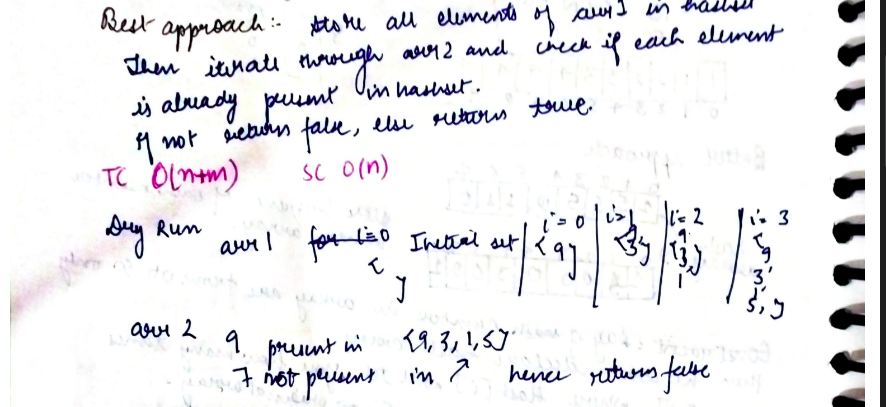 Best approach:- store all elements of arr1 in hashset
Then iterate through arr2 and check if each element
is already present in hashset.
If not return false, else return true.
TC O(n+m) SC O(n)
Dry Run arr 1 for i=0 Inetial set { } | i=0 {9} | i=1 {9, 3} | i=2 {9, 3, 1} | i=3 {9, 3, 1, 5, }
arr 2 9 present in {9, 3, 1, 5}
7 not present in ↗ hence returns false